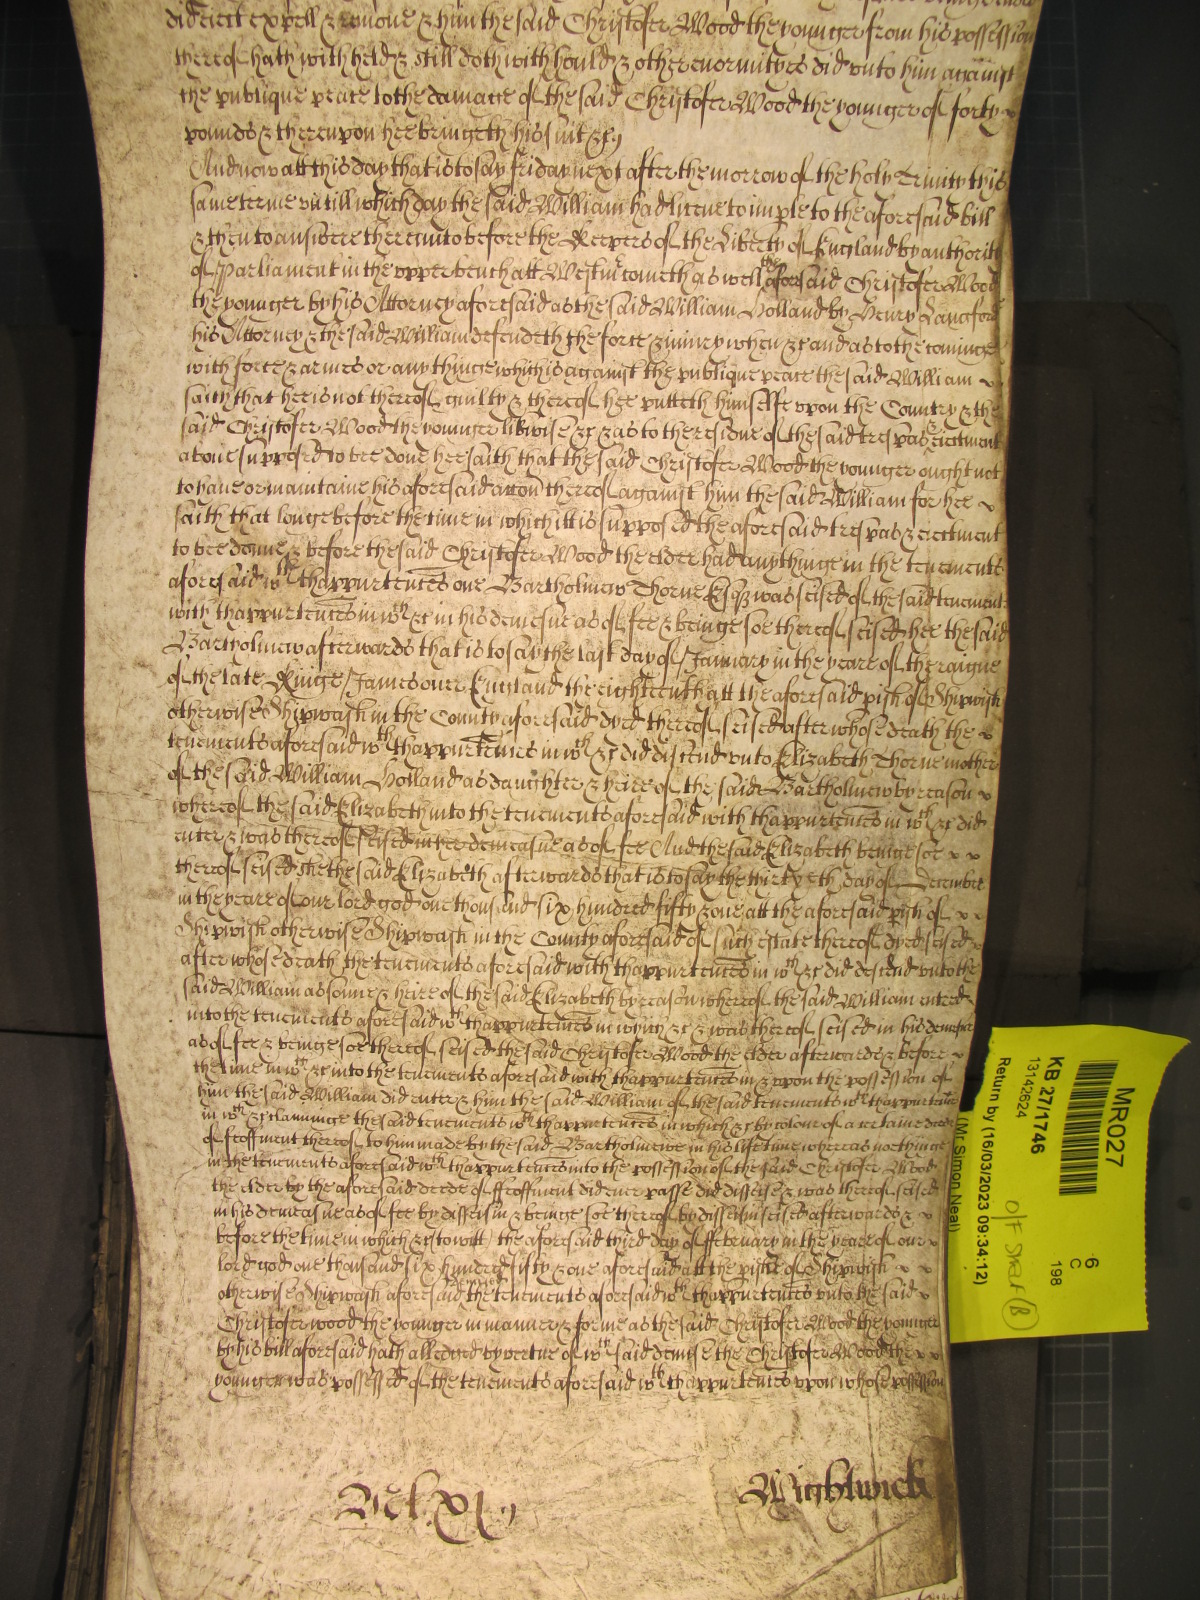 did eiect expell & remove & him the said Christofer Wood the younger from his possession
thereof hath with held & still doth with hould & other enormityes did vnto him against
the publique peace to the damage of the said Christofer Wood the younger of forty
pounds & thereupon hee bringeth his suit &c
And now att this day that is to say friday next after the morrow of the holy Trinity this
same terme vntill which day the said William had licence to imple to the aforesaid bill
& then to answere thereunto before the Keepers of the Liberty of England by authority
of Parliament in the vpper bench att Westmr cometh as well the aforesaid Christofer Wood
the younger by his Attorney aforesaid as the said William Holland by Henry Langford
his Attorney & the said William defendeth the force & iniury when &c and as to the cominge
with force & armes or any thinge which is against the publique peace the said William
saith that hee is not thereof guilty & thereof hee putteth himselfe vpon the Country & the
said Christofer Wood the younger likwise &c & as to the residue of the said trespas & eiectment
aboue supposed to bee done hee saith that the said Christofer Wood the younger ought not
to haue or maintaine his aforesaid accon thereof against him the said William for hee
saith that longe before the time in which itt is supposed the aforesaid trespas & eiectment
to bee donne & before the said Christofer Wood the elder had any thing in the tenements
aforesaid wth thappurtences one Bartholmew Thorne Esqr was seised of the said tenements
with thappurtences in wch &c in his demesne as of fee & beinge soe thereof seised hee the said
Bartholmew afterwards that is to say the last day of January in the yeare of the raigne
of the late Kinge James ouer England the eighteenth att the aforesaid pish of Shipwish
otherwise Shipwash in the County aforesaid dyed thereof seised after whose death the
tenements aforesaid wth thappurtences in wch &c did discend vnto Elizabeth Thorne mother
of the said William Holland as daughter & heire of the said Bartholmew by reason
whereof the said Elizabeth into the tenements aforesaid with thappurtences in wch &c did
enter & was thereof seised in her demeasne as of fee And the said Elizabeth beinge soe
thereof seised shee the said Elizabeth afterwards that is to say the thirtyeth day of December
in the yeare of our lord god one thousand six hundred fifty & one att the aforesaid pish of
Shipwish otherwise Shipwash in the County aforesaid of such estate thereof dyed seised
after whose death the tenements aforesaid with thappurtences in wch &c did descend vnto the
said William as sonne & heire of the said Elizabeth by reason whereof the said William entred
into the tenements aforesaid wth thappurtences in which &c & was thereof seised in his demesne
as of fee & beinge soe thereof seised the said Christofer Wood the elder afterwards & before
the time in wch &c into the tenements aforesaid with thappurtences in & vpon the possession of
him the said William did enter & him the said William of the said tenements wth thappurtences
in wch &c claiminge the said tenements wth thappurtences in which &c by colour of a certaine deed
of feoffment thereof to him made by the said Bartholmewe in his life time whereas nothinge
in the tenements aforesaid wth thappurtences into the possession of the said Christofer Wood
the elder by the aforesaid deede of ffeoffment did euer passe did disseise & was thereof seised
in his demeasne as of fee by disseisin & beinge soe thereof by disseisin seised afterwards &
before the time in which &c to witt the aforesaid third day of ffebruary in the yeare of our
lord god one thousand six hundred fifty & one aforesaid att the pishe of Shipwish
otherwise Shipwash aforesaid demised the tenements aforesaid wth thappurtences vnto the said
Christofer wood the younger in manner & forme as the said Christofer Wood the younger
by his bill aforesaid hath alledged by vertue of wch said demise the Christofer Wood the
younger was possessed of the tenements aforesaid wth thappurtences vpon whose possession
Wightwick
MR027
KB 27/1746
13142624
Return by (16/03/2023 09:34:12)
(Mr Simon Neal)
6
C
198